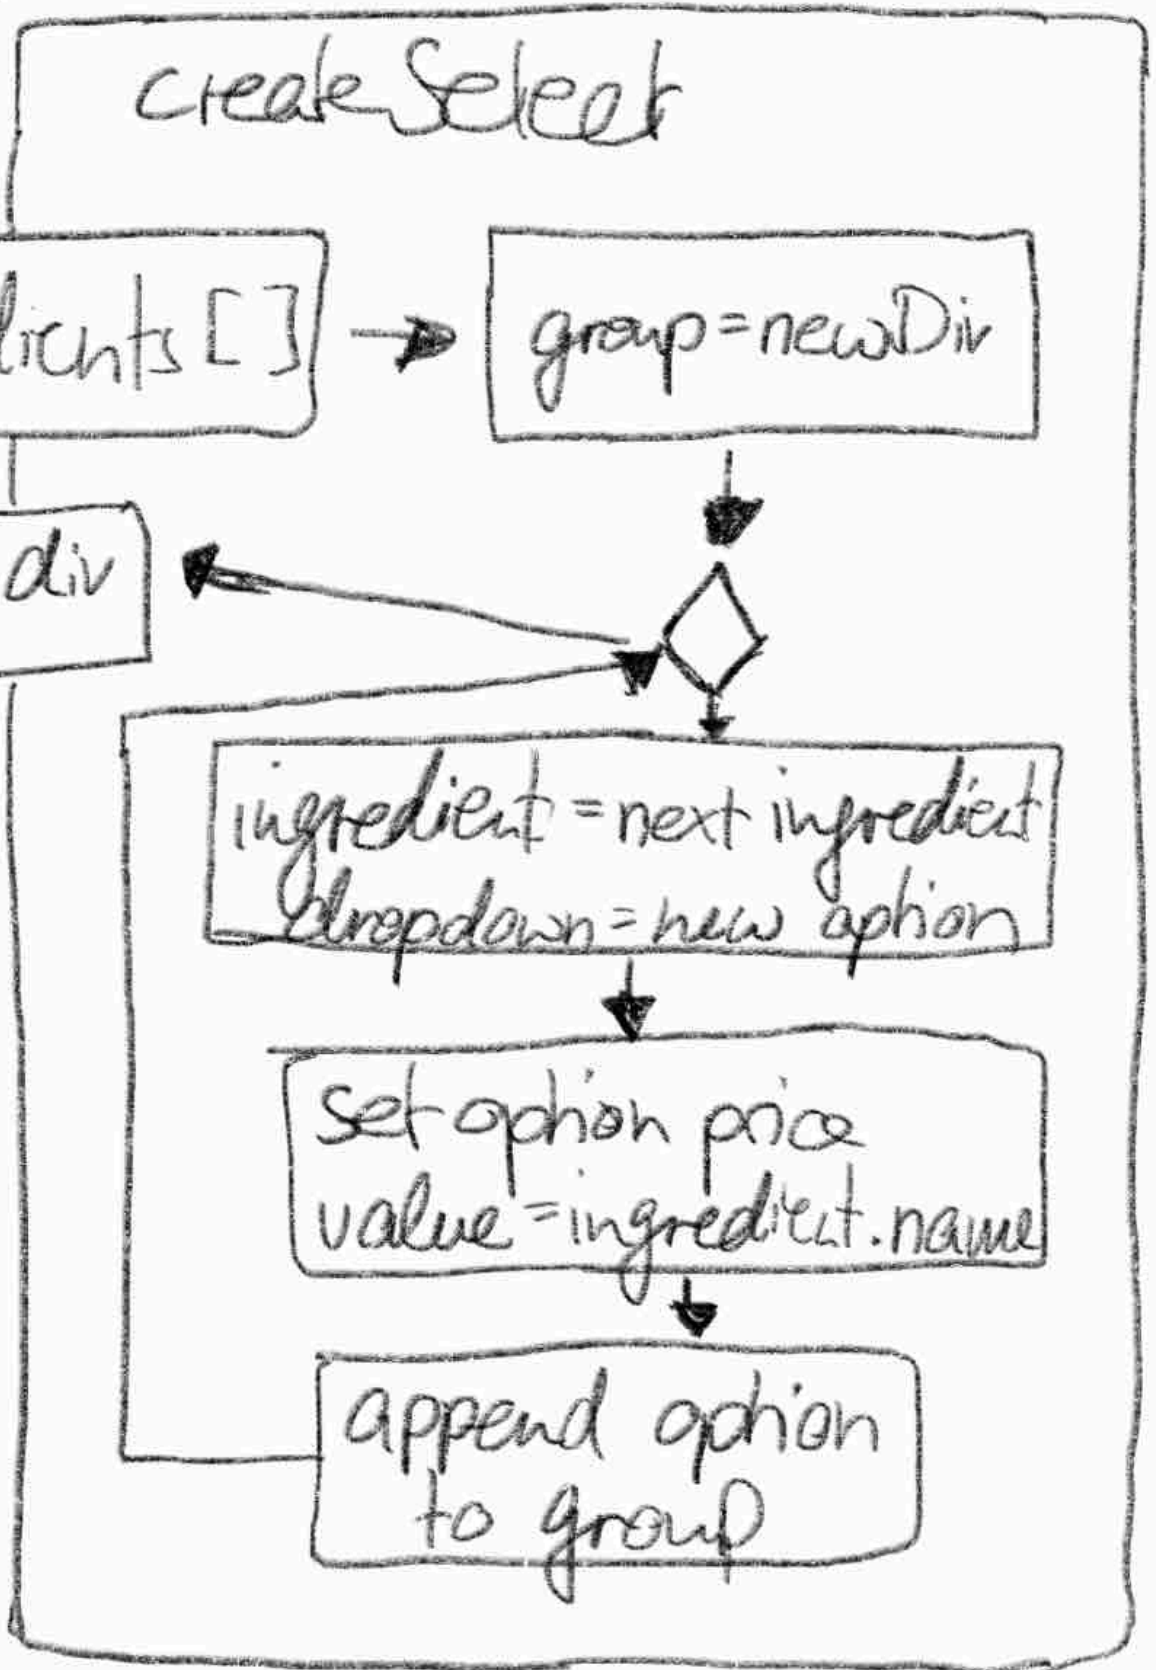 createSelect
dients []
group=newDiv
div
ingredient=next ingredient
dropdown=new option
set option price
value=ingredient.name
append option
to group